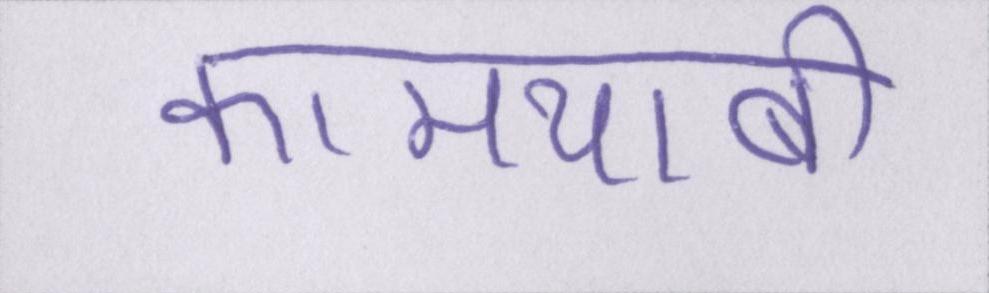 कामयाबी